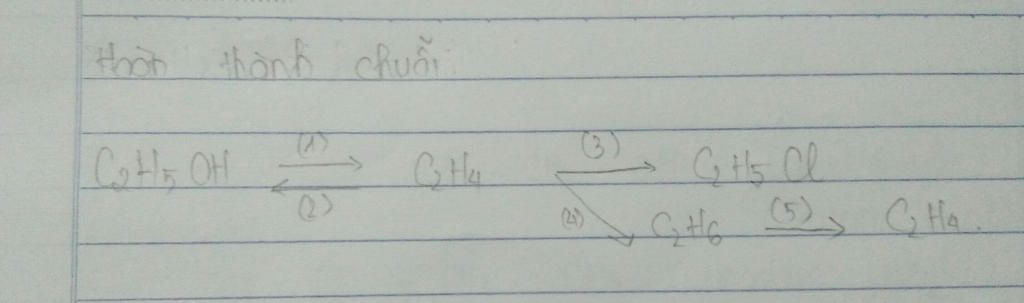 Hoàn thành chuỗi
C₂H₅OH (1) ⇄ (2) C₂H₄ (3) → C₂H₅Cl
(4) ↘ C₂H₆ (5) → C₂H₄.